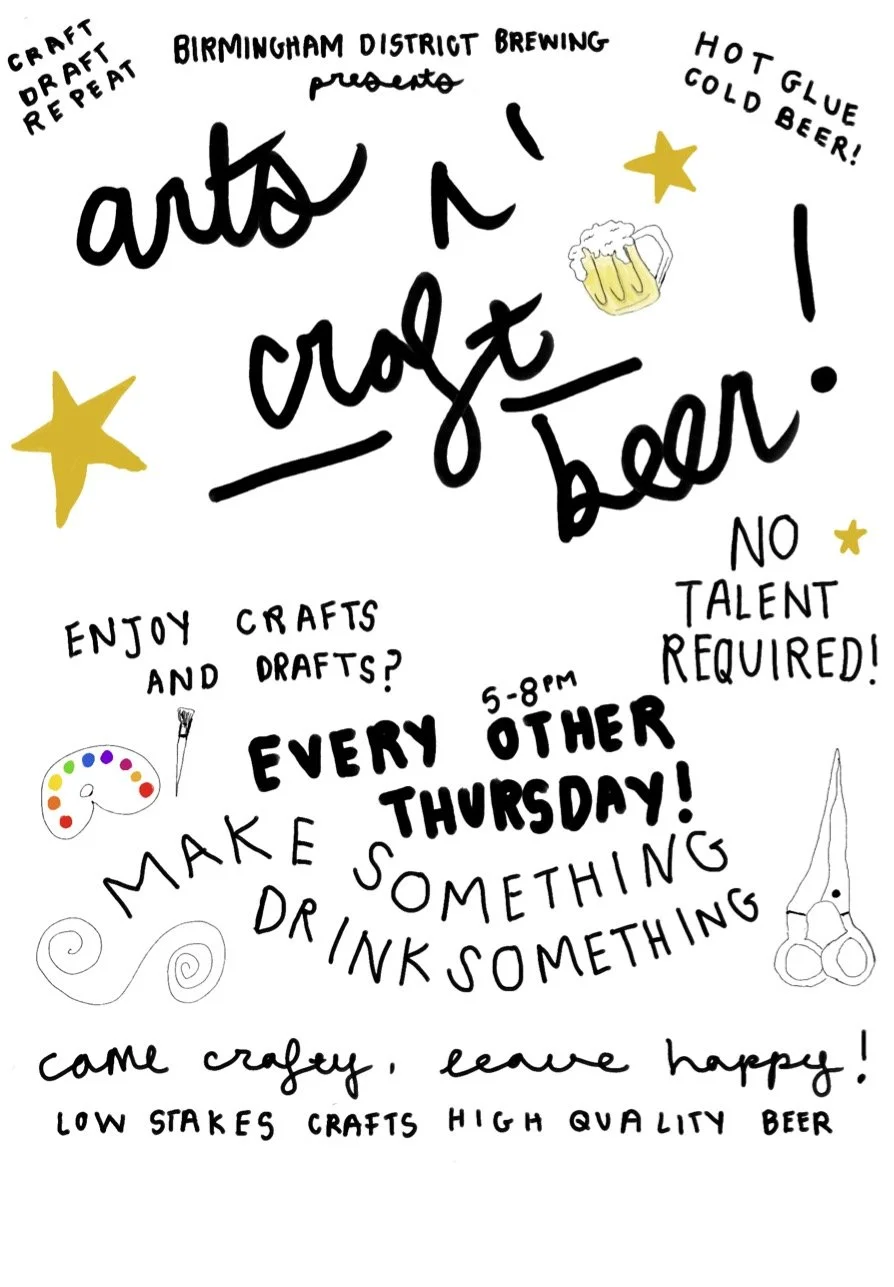 CRAFT
DRAFT
REPEAT
BIRMINGHAM DISTRICT BREWING
presents
HOT GLUE
COLD BEER!
arts n'
craft
beer!
NO
TALENT
REQUIRED!
ENJOY CRAFTS
AND DRAFTS?
5-8PM
EVERY OTHER
THURSDAY!
MAKE SOMETHING
DRINK SOMETHING
come crafty, leave happy!
LOW STAKES CRAFTS HIGH QUALITY BEER